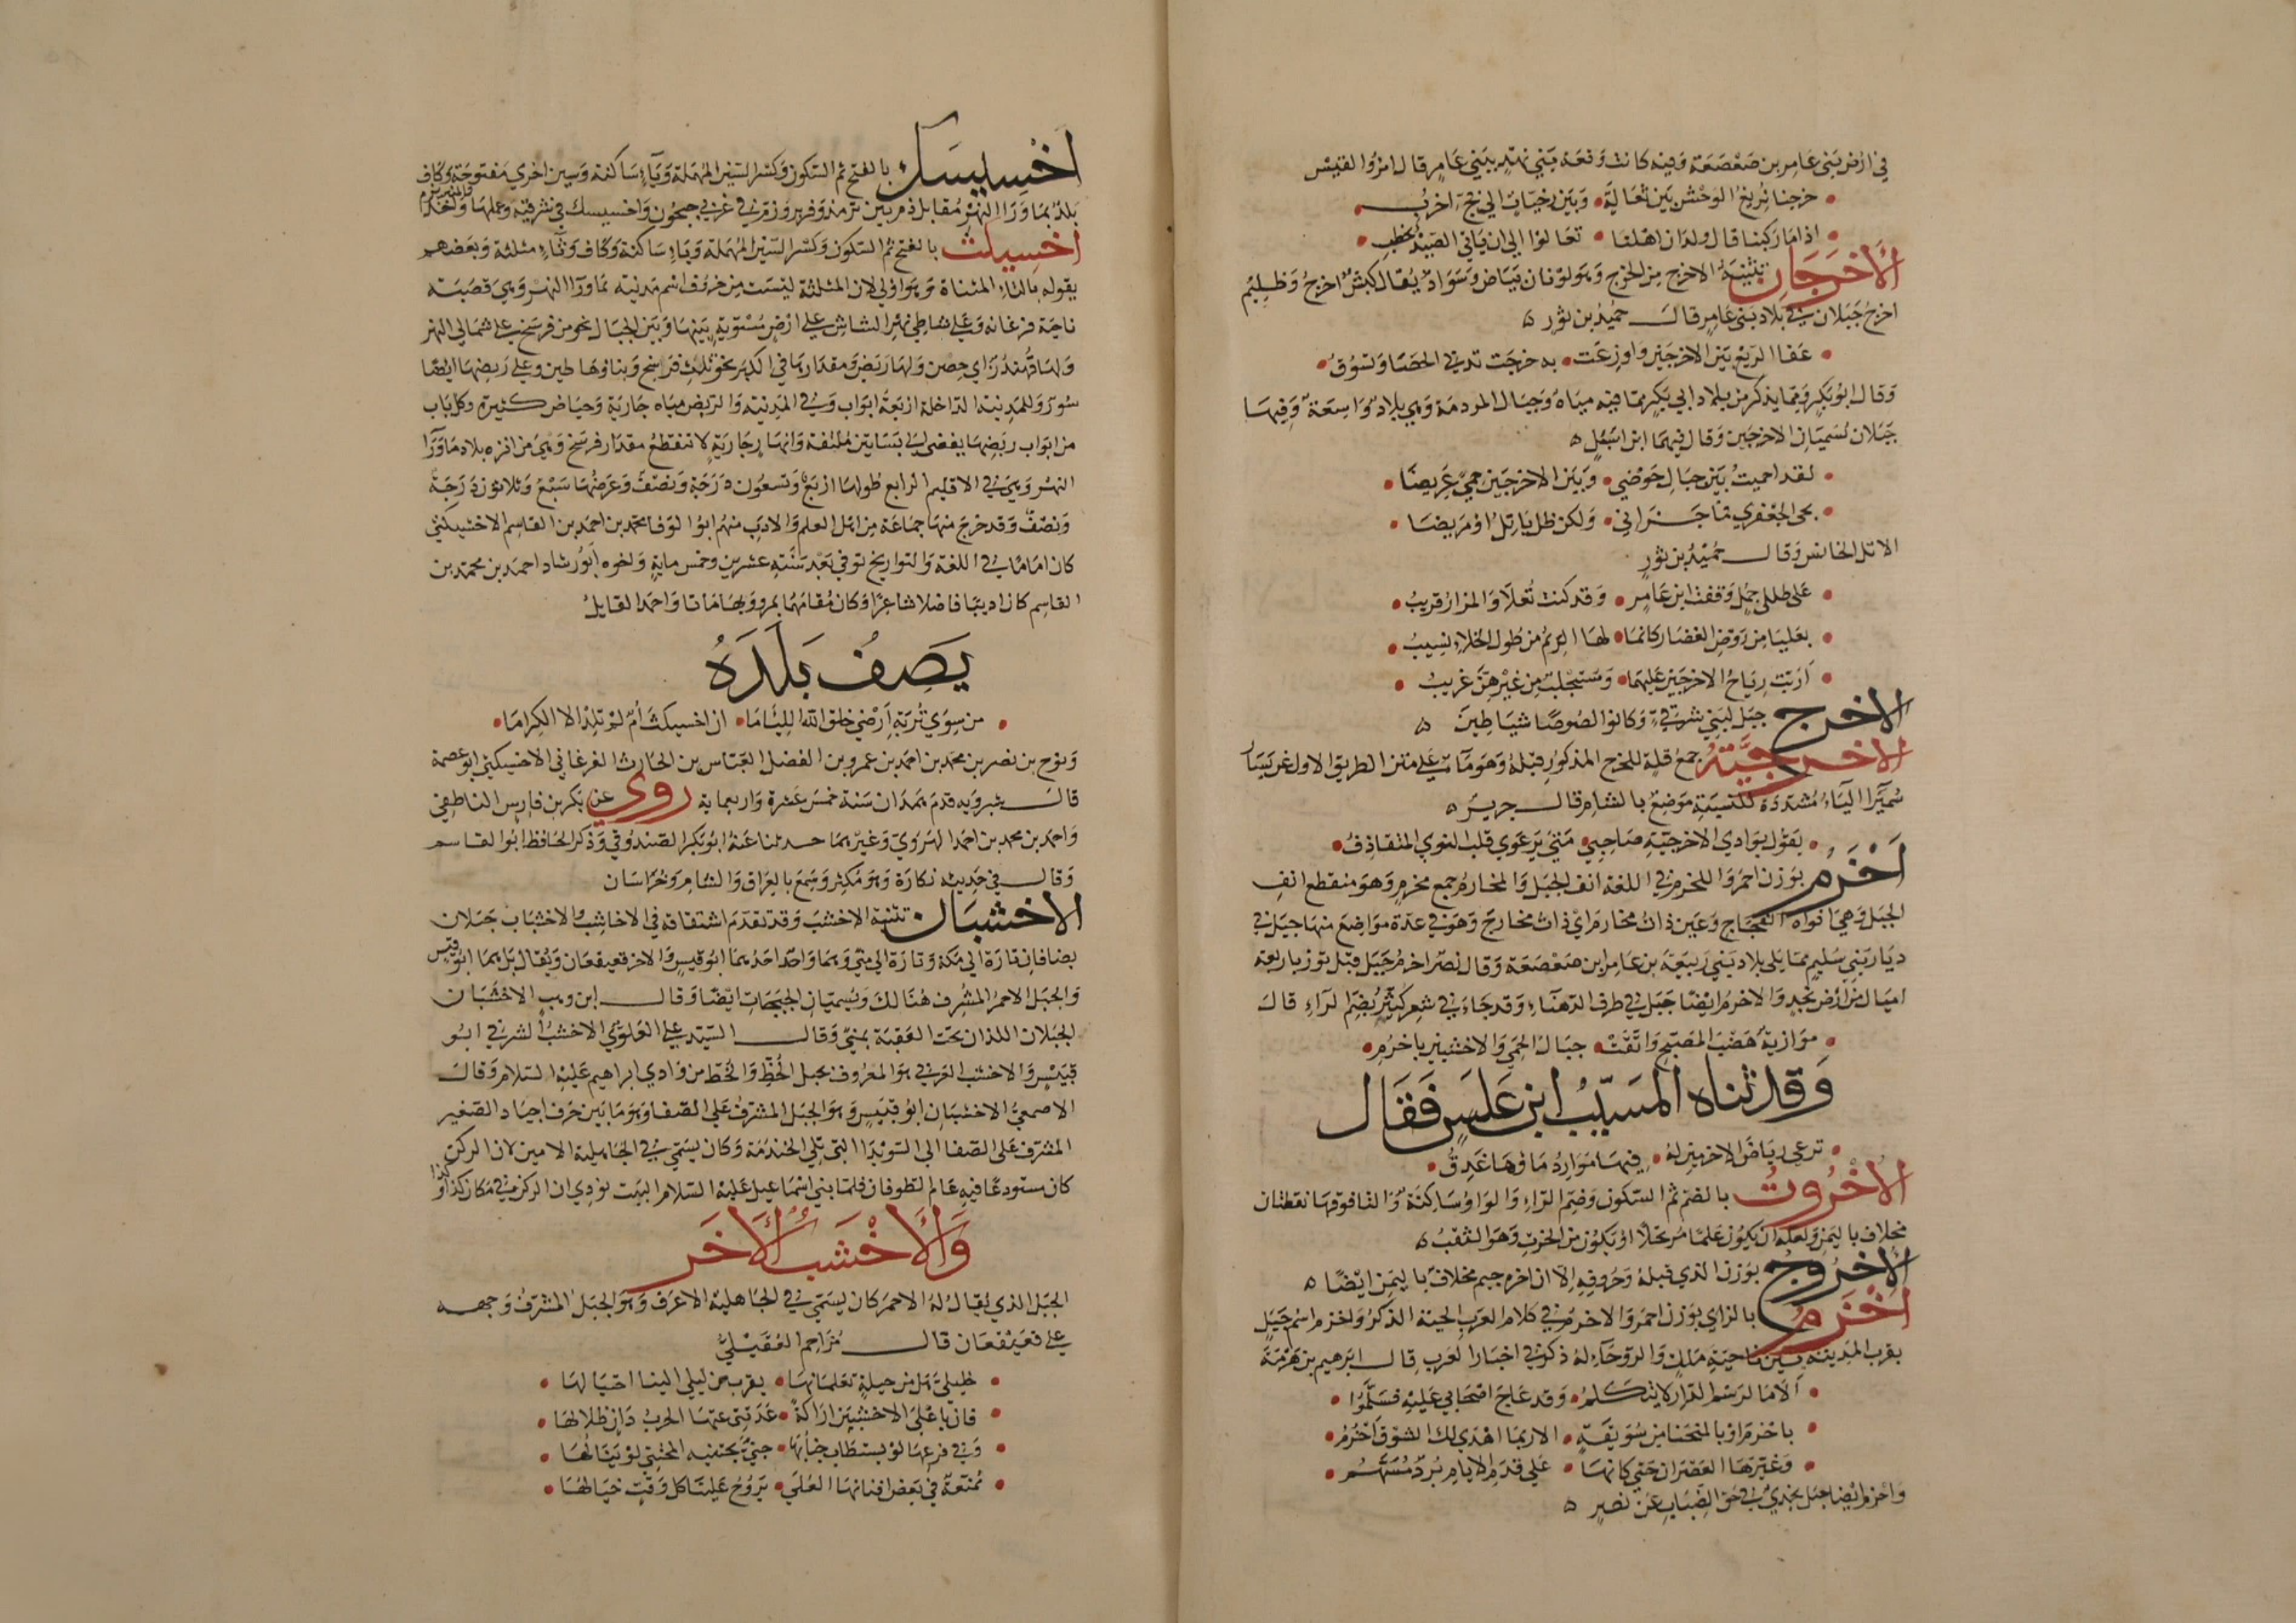 في ارض بني عامر بن صعصعة وفيه كانت وقعة بني نهد ببني عامر قال امرؤ القيس
خرجنا نريغ الوحش بين ثعالة • وبين رحيات الى فج اخرب
اذا ما ركبنا قال ولدان اهلنا • تعالوا الى ان ياتي الصيد نحطب
الأخرجان تثنية الاخرج من الخرج وهو لونان بياض وسواد يقال كبش اخرج وظليم
اخرج جبلان في بلاد بني عامر قال حميد بن ثور ه
عفا الربع بين الاخرجين واوزعت • به حرجف تدني الحصا وتسوق
وقال ابو بكر ومما يذكر من بلاد ابي بكر مما فيه مياه وجبال المردمة وهي بلاد واسعة وفيها
جبلان تسميان الاخرجين وقال فيهما ابن شبل ه
لقد احميت بين جبال حوضي • وبين الاخرجين حمى عريضا
بحى الجعفري فما جزاني • ولكن ظل ياتل او مريضا
الاتل الخانس وقال حميد بن ثور
على طللي جمل وقفت ابن عامر • وقد كنت تعلا والمزار قريب
بعليا من روض الغضار كانما • لها الريم من طول الخلاء نسيب
اربت رياح الاخرجين عليهما • ومستجلب من غيرهن غريب
الاخرج جبل لبني شرقي وكانوا لصوصا شياطين ه
الاخرجية جمع قلة للخرج المذكور قبله وهو ماء على متن الطريق الاول عن يسار
سميرا الياء مشددة للنسبة موضع بالشام قال جرير ه
يقول بوادي الاخرجية صاحبي • متى يرعوي قلب النوي المتقاذف
أخرم بوزن احمر والخرم في اللغة انف الجبل والمخارم جمع مخرم وهو منقطع انف
الجبل وهي افواه الفجاج وعين ذات مخارم اي ذات مخارج وهو في عدة مواضع منها جبل في
ديار بني سليم مما يلي بلاد بني ربيعة بن عامر ابن صعصعة وقال نصر اخرم جبل قبل توز باربعة
اميال من ارض نجد والاخرم ايضا جبل في طرف الدهناء وقد جاء في شعر كثير بضم الراء قال
موازية هضب المضيح واتقت • جبال الحمى والاخشبين باخرم
وقد ثناه المسيب ابن علس فقال
ترعى رياض الاخرمين له • فيها موارد ماؤها غدق
الأخروت بالضم ثم السكون وضم الراء والواو ساكنة والتا فوقها نقطتان
مخلاف باليمن ولعله ان يكون علما مرتجلا او يكون من الخرت وهو الثقب ه
الأخروج بوزن الذي قبله وحروفه الا ان اخره جيم مخلاف باليمن ايضا ه
أخزم بالزاي بوزن احمر والاخزم في كلام العرب الحية الذكر واخزم اسم جبل
بقرب المدينة بين ناحية ملل والروحاء له ذكر في اخبار العرب قال ابرهيم بن هرمة
ألا ما لرسم الدار لا يتكلم • وقد عاج اصحابي عليه فسلموا
باخزم او بالمنحنا من سويقة • الا ربما اهدى لك الشوق اخزم
وغيرها العصران حتى كانها • على قدم الايام برد مسهم
واخزم ايضا جبل نجدي في حق الضباب عن نصر ه
اخسيسك بالفتح ثم السكون وكسر السين المهملة وياء ساكنة وسين اخرى مفتوحة وكاف
بلد بما ورا النهر مقابل زم بين ترمذ وفربر وزم في غربي جيحون واخسيسك في شرقيه وعملهما واحد
اخسيكث بالفتح ثم السكون وكسر السين المهملة وياء ساكنة وكاف وثاء مثلثة وبعضهم
يقوله بالتاء المثناة وهو اولى لان المثلثة ليست من حروف اسم مدينة بما ورا النهر وهي قصبة
ناحية فرغانه وهي على شاطي نهر الشاش على ارض مستوية بينها وبين الجبال نحو من فرسخ على شمالي النهر
ولها قهندز اي حصن ولها ربض ومقدارها في الكبر نحو ثلث فراسخ وبناؤها طين وعلى ربضها ايضا
سور وللمدينة الداخلة اربعة ابواب وفي المدينة والربض مياه جارية وحياض كثيرة وكل باب
من ابواب ربضها يفضي الى بساتين ملتفة وانهار جارية لا تنقطع مقدار فرسخ وهي من انزه بلاد ما ورآ
النهر وهي في الاقليم الرابع طولها اربع وتسعون درجة ونصف وعرضها سبع وثلاثون درجة
ونصف وقد خرج منها جماعة من اهل العلم والادب منهم ابو الوفا محمد بن احمد بن القاسم الاخسيكثي
كان اماما في اللغة والتواريخ توفي بعد سنة عشرين وخمس مايه واخوه ابو رشاد احمد بن محمد بن
القاسم كان اديبا فاضلا شاعرا وكان مقامهما بمرو وبها ماتا واحمد القايل
يصف بلده
من سوى تربة ارضي خلق الله اللئاما • ان اخسيكث أم لم تلد الا الكراما
ونوح بن نصر بن محمد بن احمد بن عمرو بن الفضل العباس بن الحارث الفرغاني الاخسيكثي ابو عصمة
قال شيرويه قدم همدان سنة خمس عشرة واربعماية روى عن بكر بن فارس الناطفي
واحمد بن محمد بن احمد الهروي وغيرهما حدثنا عنه ابو بكر الصندوقي وذكر الحافظ ابو القاسم
وقال في حديثه نكارة وهو مكثر وسمع بالعراق والشام وخراسان
الاخشبان تثنية الاخشب وقد تقدم اشتقاقه في الاخاشب والاخشباب جبلان
يضافان تارة الى مكة وتارة الى منى وهما واحد احدهما ابو قبيس والاخر قعيقعان ويقال بل هما ابو قبيس
والجبل الاحمر المشرف هنالك ويسميان الجبجبان ايضا وقال ابن وهب الاخشبان
الجبلان اللذان تحت العقبة بمنى وقال السيد علي العلوي الاخشب الشرقي ابو
قبيس والاخشب الغربي هو المعروف بجبل الخط والخط من وادي ابراهيم عليه السلام وقال
الاصمعي الاخشبان ابو قبيس وهو الجبل المشرف على الصفا وهو ما بين حرف اجياد الصغير
المشرف على الصفا الى السويدا التي تلي الخندمة وكان يسمى في الجاهلية الامين لان الركن
كان مستودعا فيه عام الطوفان فلما بنى اسماعيل عليه السلام البيت نودي ان الركن في مكان كذا وكذا
والأخشب الأخر
الجبل الذي يقال له الاحمر كان يسمى في الجاهلية الاعرف وهو الجبل المشرف وجهه
على قعيقعان قال مزاحم العقيلي
خليلي هل من حيلة تعلمانها • يقرب من ليلى الينا احتيالها
فان باعلى الاخشبين اراكة • عدتني عنها الحرب دان ظلالها
وفي فرعها لو يستطاب جنابها • جنى يجتنيه المجتني لو ينالها
ممنعة في بعض افنانها العلى • يروح علينا كل وقت خيالها